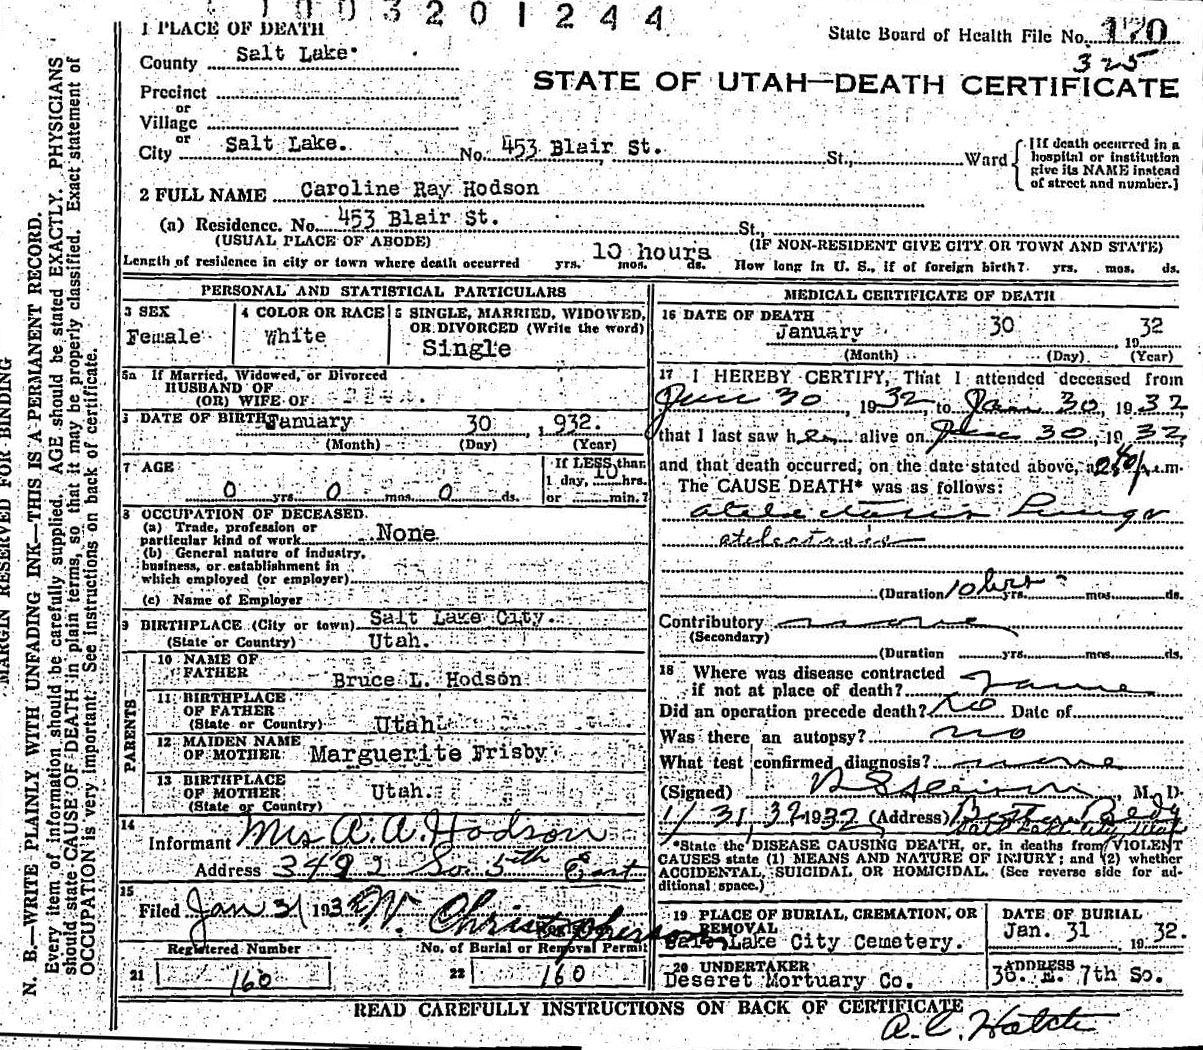 1003201244
1 PLACE OF DEATH
State Board of Health File No. 170
325
County Salt Lake
STATE OF UTAH—DEATH CERTIFICATE
Precinct
or
Village
or
City Salt Lake. No. 453 Blair St. St., Ward
[If death occurred in a hospital or institution give its NAME instead of street and number.]
2 FULL NAME Caroline Ray Hodson
(a) Residence. No. 453 Blair St. St.,
(USUAL PLACE OF ABODE) (IF NON-RESIDENT GIVE CITY OR TOWN AND STATE)
Length of residence in city or town where death occurred yrs. 10 hours mos. ds. How long in U. S., if of foreign birth? yrs. mos. ds.
PERSONAL AND STATISTICAL PARTICULARS
3 SEX
Female
4 COLOR OR RACE
White
5 SINGLE, MARRIED, WIDOWED, OR DIVORCED (Write the word)
Single
5a If Married, Widowed, or Divorced
HUSBAND OF
(OR) WIFE OF
6 DATE OF BIRTH January 30 , 1932.
(Month) (Day) (Year)
7 AGE
0 yrs. 0 mos. 0 ds.
If LESS than
1 day, 10 hrs.
or min.?
8 OCCUPATION OF DECEASED.
(a) Trade, profession or
particular kind of work None
(b) General nature of industry,
business, or establishment in
which employed (or employer)
(c) Name of Employer
9 BIRTHPLACE (City or town) Salt Lake City.
(State or Country) Utah.
PARENTS
10 NAME OF
FATHER Bruce L. Hodson
11 BIRTHPLACE
OF FATHER
(State or Country) Utah.
12 MAIDEN NAME
OF MOTHER Marguerite Frisby
13 BIRTHPLACE
OF MOTHER Utah.
(State or Country)
14
Informant Mrs A. A. Hodson
Address 3492 So. 5th East
15
Filed Jan 31 193 W. Christopherson
Registrar
Registered Number
21 160
No. of Burial or Removal Permit
22 160
MEDICAL CERTIFICATE OF DEATH
16 DATE OF DEATH
January 30 19 32
(Month) (Day) (Year)
17 I HEREBY CERTIFY, That I attended deceased from
Jan 30, 1932, to Jan 30, 1932
that I last saw her alive on Jan 30, 1932,
and that death occurred, on the date stated above, at m.
The CAUSE DEATH* was as follows:
atelectasis Lungs
atelectasis
(Duration 10 hrs yrs. mos. ds.
Contributory none
(Secondary)
(Duration yrs. mos. ds.
18 Where was disease contracted
if not at place of death?
Did an operation precede death? No Date of
Was there an autopsy? no
What test confirmed diagnosis? none
(Signed) , M. D.
1/31, 32 1932 (Address)
Salt Lake City, Utah
*State the DISEASE CAUSING DEATH, or, in deaths from VIOLENT
CAUSES state (1) MEANS AND NATURE OF INJURY; and (2) whether
ACCIDENTAL, SUICIDAL OR HOMICIDAL. (See reverse side for additional space.)
19 PLACE OF BURIAL, CREMATION, OR REMOVAL
Salt Lake City Cemetery.
DATE OF BURIAL
Jan. 31 19 32.
20 UNDERTAKER
Deseret Mortuary Co.
ADDRESS
36 E. 7th So.
READ CAREFULLY INSTRUCTIONS ON BACK OF CERTIFICATE
A. C. Hatch
MARGIN RESERVED FOR BINDING
N. B.—WRITE PLAINLY WITH UNFADING INK—THIS IS A PERMANENT RECORD.
Every item of information should be carefully supplied. AGE should be stated EXACTLY. PHYSICIANS
should state CAUSE OF DEATH in plain terms, so that it may be properly classified. Exact statement of
OCCUPATION is very important. See instructions on back of certificate.